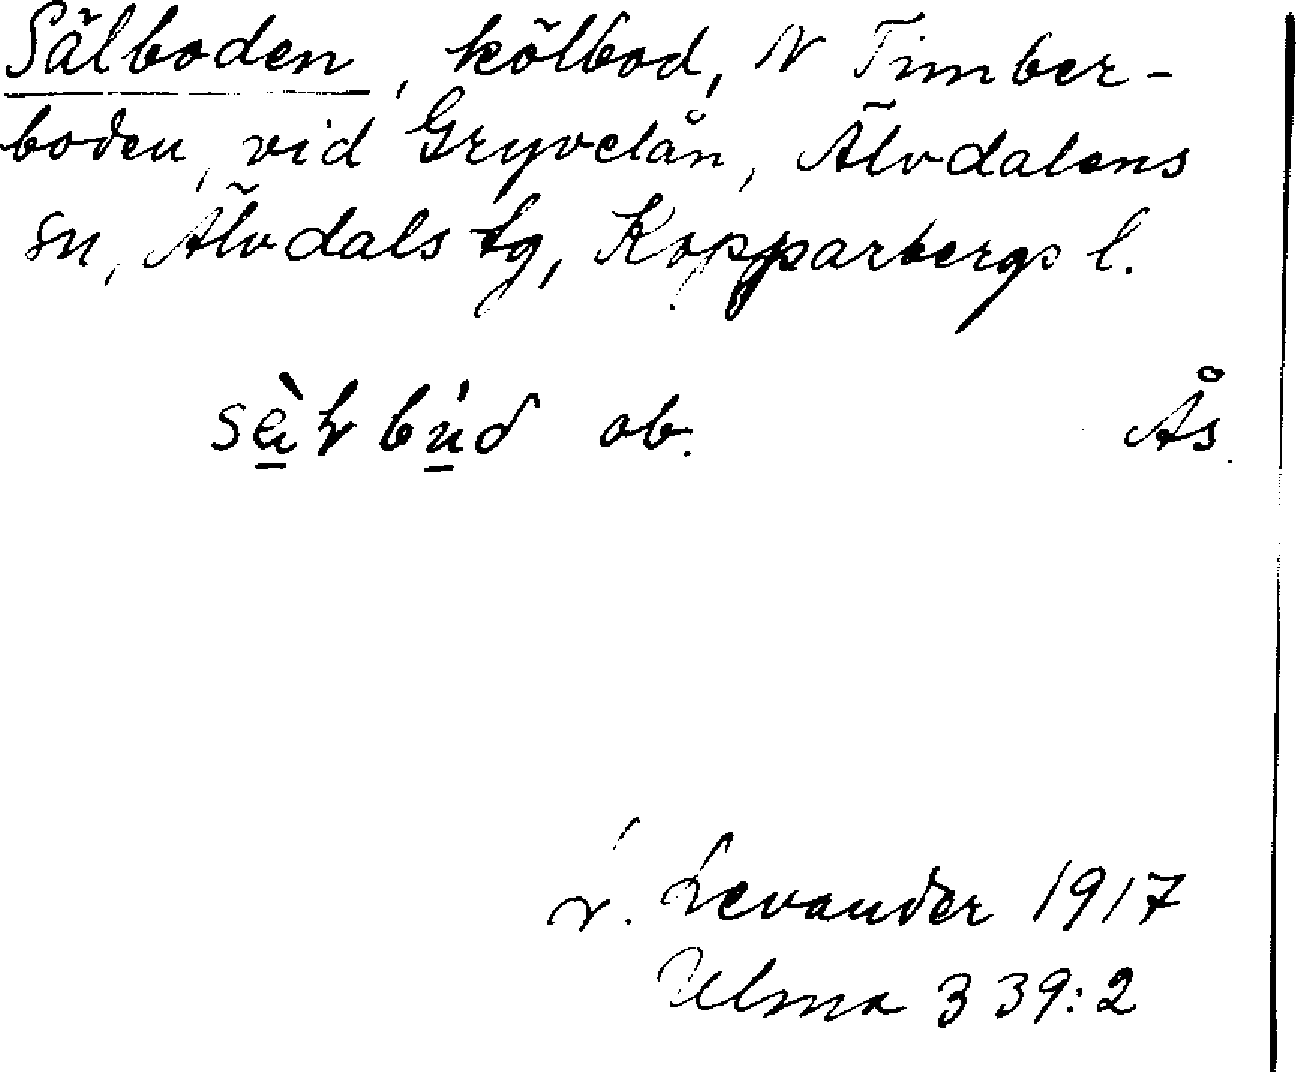 Sälboden, kölbod, N Timber-
boden, vid Gryvelån, Älvdalens
sn, Älvdals tg, Kopparbergs l.
ob. Ås.
Levander 1917
Ulma 339:2